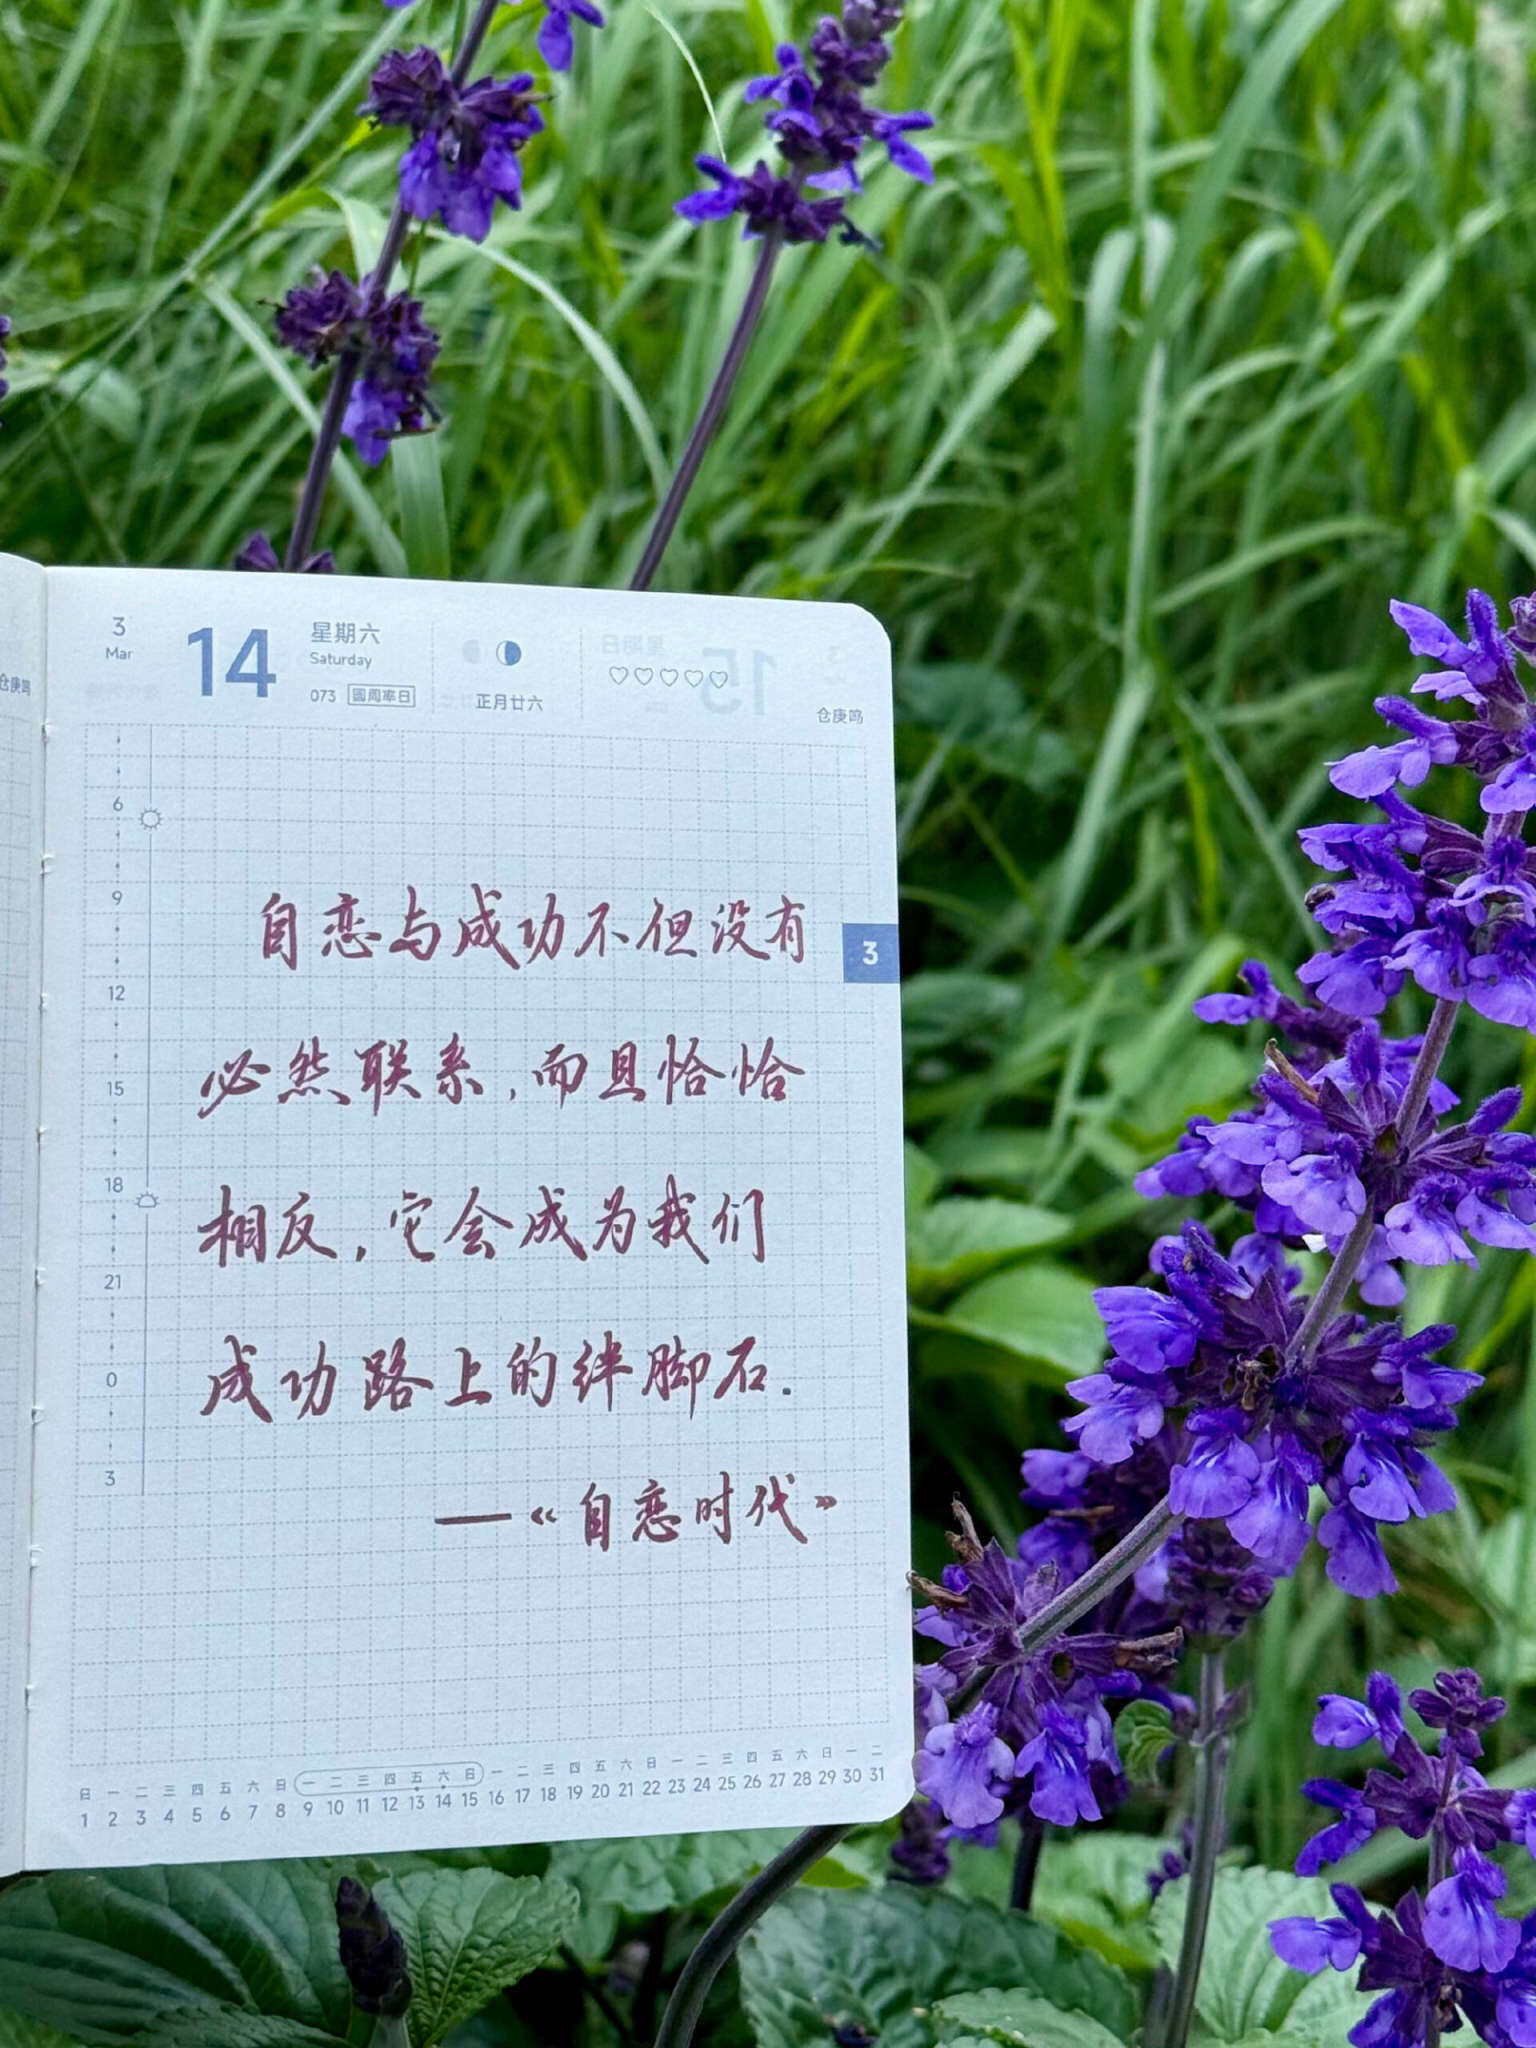 3
Mar
14
星期六
Saturday
073 圆周率日
正月廿六
♡♡♡♡♡
仓庚鸣
仓庚鸣
6
9
12
15
18
21
0
3
3
自恋与成功不但没有
必然联系，而且恰恰
相反，它会成为我们
成功路上的绊脚石.
—《自恋时代》
日 一 二 三 四 五 六 日 一 二 三 四 五 六 日 一 二 三 四 五 六 日 一 二 三 四 五 六 日 一 二
1 2 3 4 5 6 7 8 9 10 11 12 13 14 15 16 17 18 19 20 21 22 23 24 25 26 27 28 29 30 31